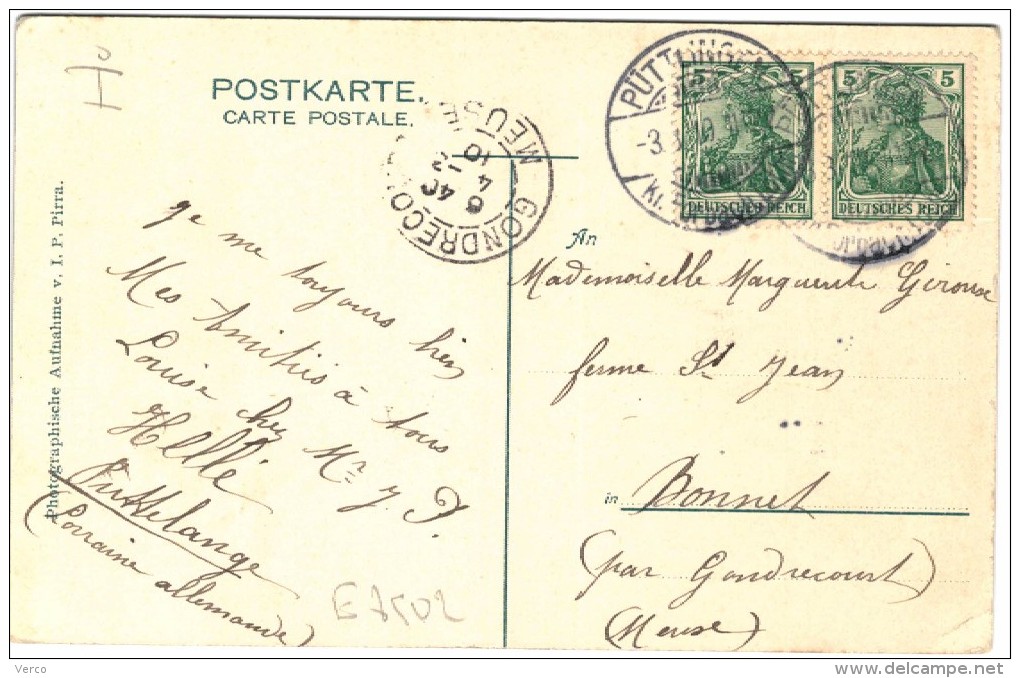 POSTKARTE.
CARTE POSTALE.
Photographische Aufnahme v. I. P. Pirra.
je me toujours bien
Mes Amitiés à tous
Louise chez Mr J. P.
Hellé
Puttelange
(Lorraine allemande)
E 7502
PÜTTLINGEN
-3.
5 5
DEUTSCHES REICH
5 5
DEUTSCHES REICH
GONDRECO
MEUSE
6 40
4
10
An
Mademoiselle Marguerite
ferme St Jean
in Bonnet
(par Gondrecourt)
(Meuse)
Verco
delcampe.net